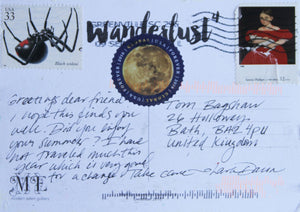 USA
33
Black widow
GREENVILLE SC 296
Wanderlust
FOREVER
USA
Greetings dear friend,
I hope this finds you
well. Did you enjoy
your summer? I have
not traveled much this
year which is very good
for a change! Take care
Tom Bagshaw
26 Holloway
Bath, BA2 4PU
United Kingdom